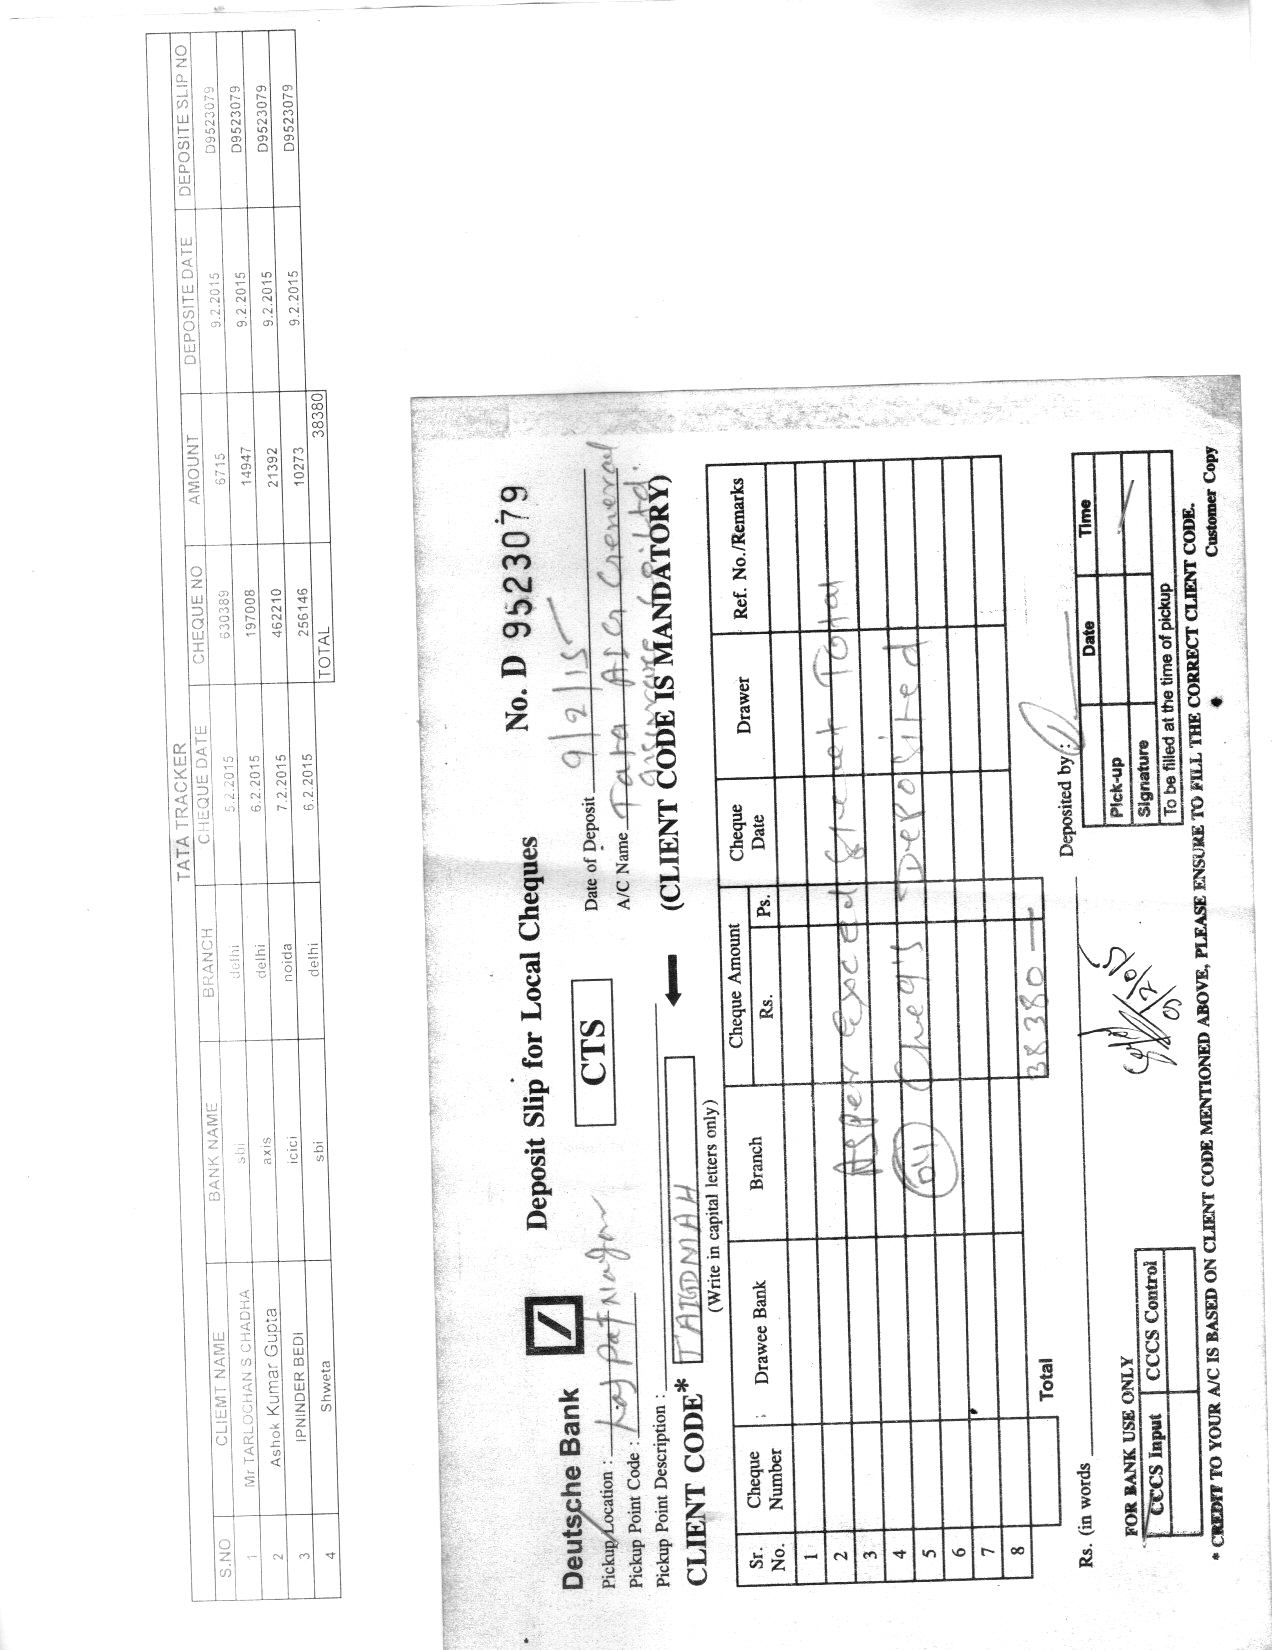 TATA TRACKER
S.NO CLIEMT NAME BANK NAME BRANCH CHEQUE DATE CHEQUE NO AMOUNT DEPOSITE DATE DEPOSITE SLIP NO
1 Mr TARLOCHAN S CHADHA sbi delhi 5.2.2015 630389 6715 9.2.2015 D9523079
2 Ashok Kumar Gupta axis delhi 6.2.2015 197008 14947 9.2.2015 D9523079
3 IPNINDER BEDI icici noida 7.2.2015 462210 21392 9.2.2015 D9523079
4 Shweta sbi delhi 6.2.2015 256146 10273 9.2.2015 D9523079
TOTAL 38380
Deutsche Bank Deposit Slip for Local Cheques No. D 9523079
Pickup Location : Lajpat Nagar CTS Date of Deposit 9/2/15
Pickup Point Code : A/C Name Tata AIG General
Pickup Point Description :
CLIENT CODE* TAIGDMAH (CLIENT CODE IS MANDATORY)
(Write in capital letters only)
Sr. No. Cheque Number Drawee Bank Branch Cheque Amount Rs. Ps. Cheque Date Drawer Ref. No./Remarks
1
2 As per Exced Sheet Total
3
4 04 Cheq's Deposited
5
6
7
8
Total 38380
Rs. (in words Deposited by :
Date Time
Pick-up
Signature
To be filled at the time of pickup
FOR BANK USE ONLY
CCCS Input CCCS Control
* CREDIT TO YOUR A/C IS BASED ON CLIENT CODE MENTIONED ABOVE, PLEASE ENSURE TO FILL THE CORRECT CLIENT CODE.
Customer Copy